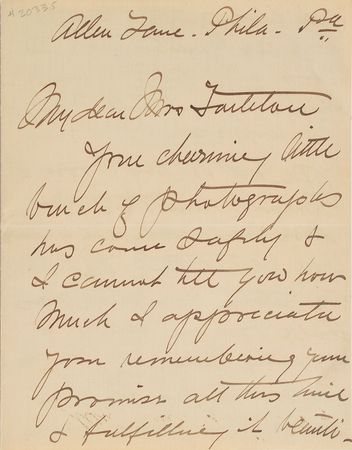 # 20335
Allen Lane - Phila - Pa
My dear Mrs Tarleton
Your charming little
bunch of photographs
has come safely &
I cannot tell you how
much I appreciate
your remembering your
promise all this time
& fulfilling it beauti-